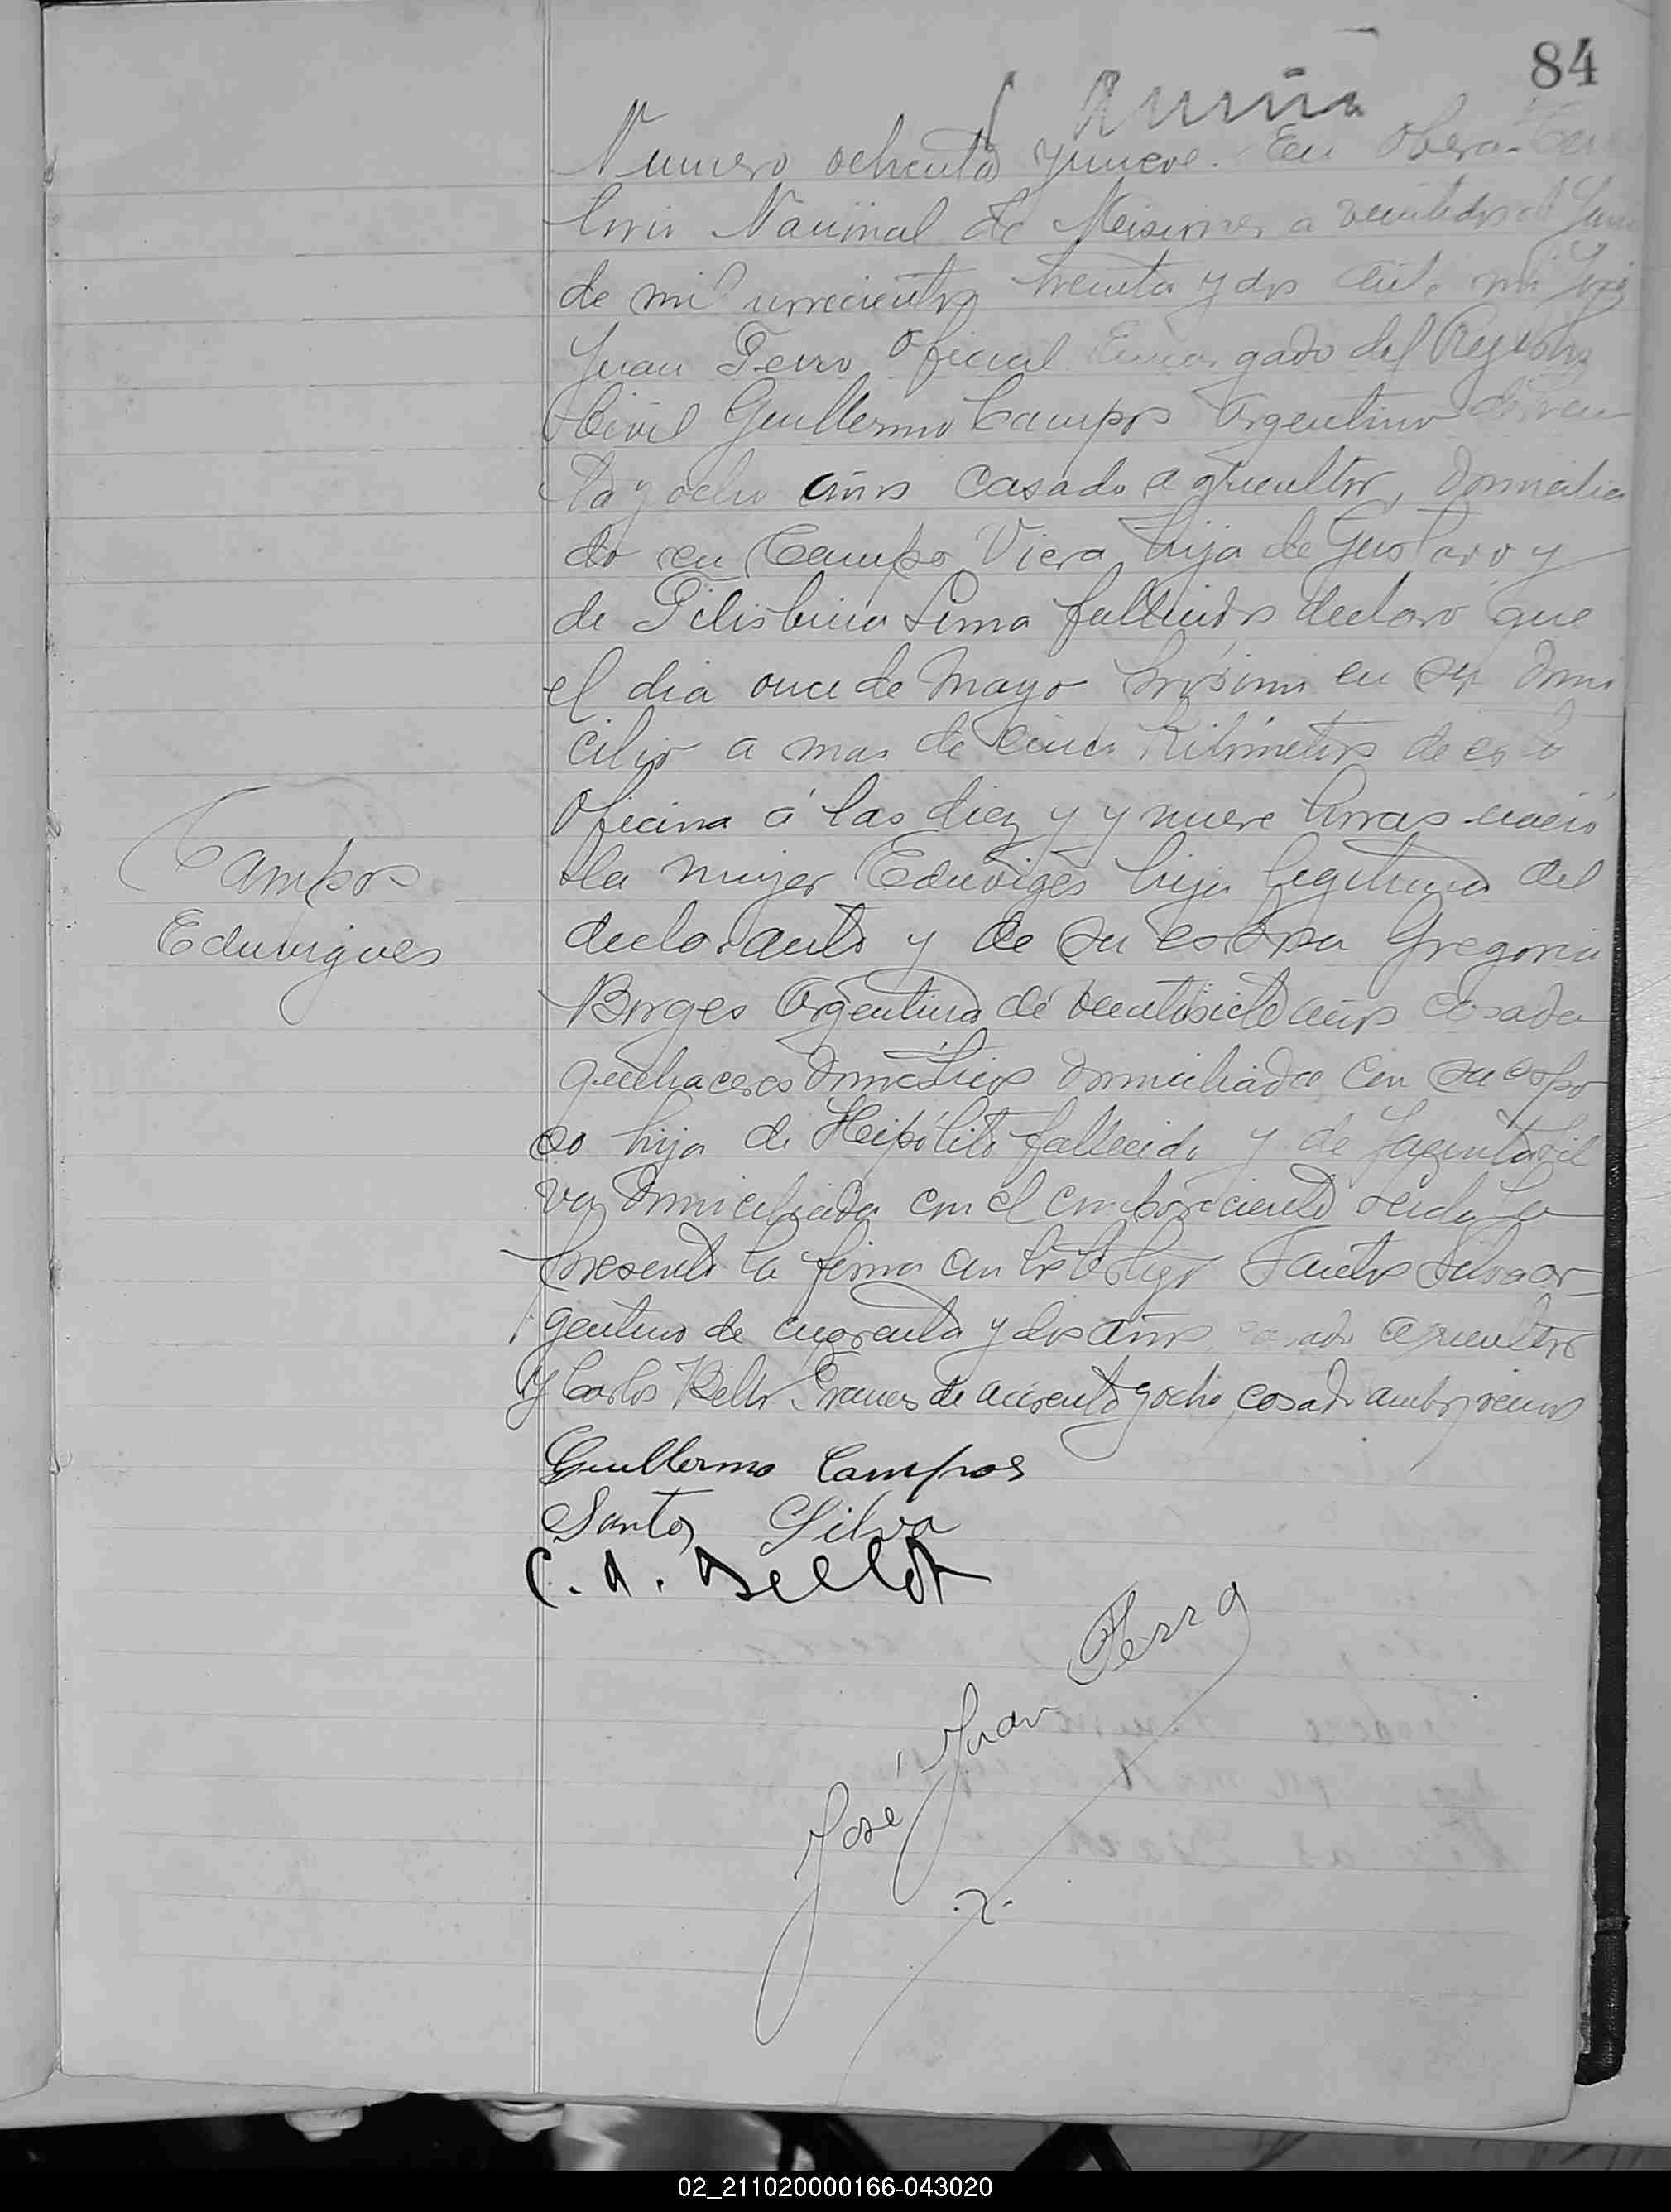 84
Numero ochenta y nueve. En Obera-Te
rrio Nacional de Meisiones a veintidos de Junio
de mil novecientos treinta y dos ante mi José
Juan Ferro Oficial Encargado del Registro
Civil Guillermo Campos Argentino de
ta y ocho años casado agricultor, domicilia
do en Campo Viera hijo de Gustavo y
de Felisbina Lima fallecidos declaro que
el dia once de Mayo en su domi
cilio a mas de cinco Kilometros de esta
Oficina á las diez y y nueve horas nació
la mujer Eduviges hija legitima del
Campos
Eduvigues
declarante y de su esposa Gregoria
Borges Argentina de veintisiete años casada
quehaceres domesticos domiciliada con su espo
so hija de Heipólito fallecido y de Jacinta Sil
va domiciliada con el compareciente leida la
presente la firma con los testigos Santos Silva ar-
gentino de cuarenta y dos años casado agricultor
y Carlos Bellot Frances de cuarenta y ocho, casado ambos vecinos
Guillermo Campos
Santos Silva
C. A. Bellot
José Juan Ferro
02_211020000166-043020